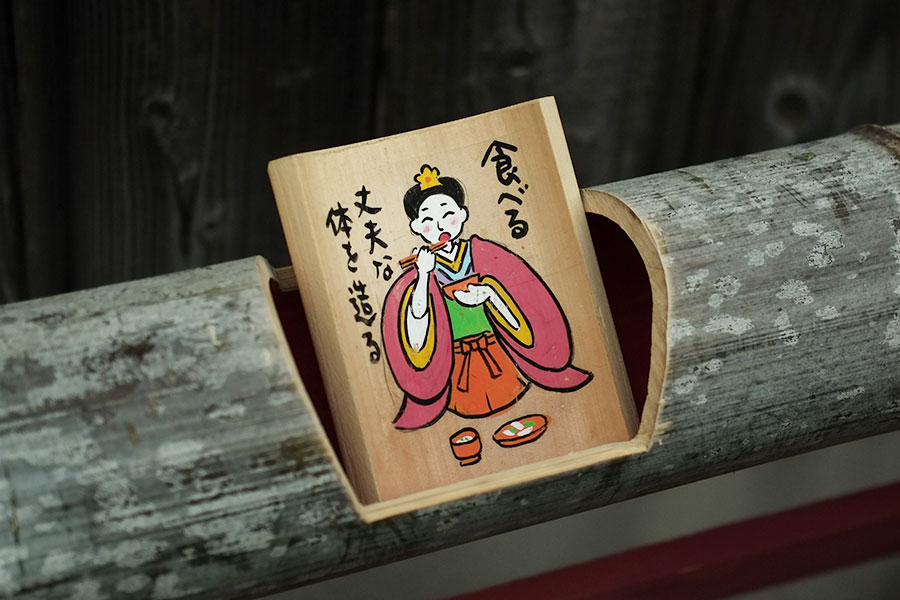 食べる
丈夫な
体を造る